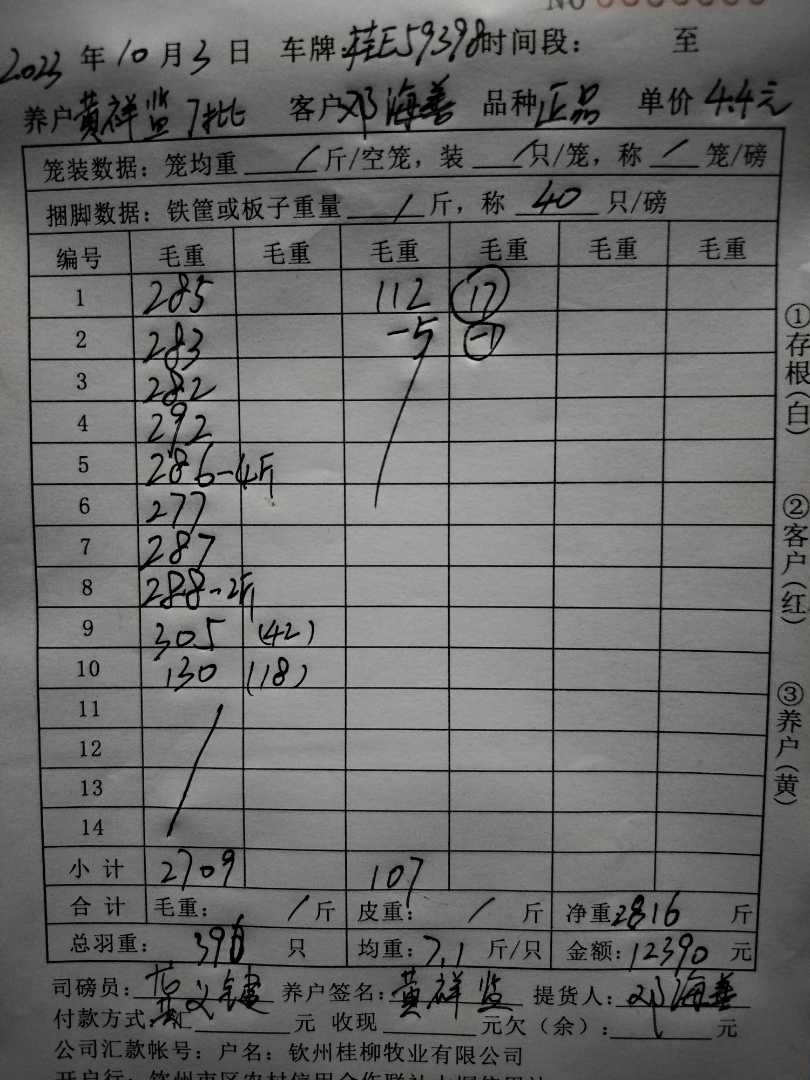 NO
2023 年 10 月 3 日 车牌:桂E59398 时间段: 至
养户 黄祥监 7批 客户 邓海善 品种 正品 单价 4.4元
笼装数据:笼均重 / 斤/空笼,装 / 只/笼,称 / 笼/磅
捆脚数据:铁筐或板子重量 / 斤,称 40 只/磅
编号 毛重 毛重 毛重 毛重 毛重 毛重
1 285 112 17
2 283 -5 -1
3 282
4 292
5 286-4斤
6 277
7 287
8 288-2斤
9 305 (42)
10 130 (18)
11
12
13
14
小计 2709 107
合计 毛重: / 斤 皮重: / 斤 净重:2816 斤
总羽重: 396 只 均重:7.1 斤/只 金额:12390 元
司磅员: 养户签名:黄祥监 提货人:邓海善
付款方式: 汇 元 收现 元欠(余): 元
公司汇款帐号:户名:钦州桂柳牧业有限公司
开户行:钦州市区农村信用合作联社
①存根(白)
②客户(红)
③养户(黄)